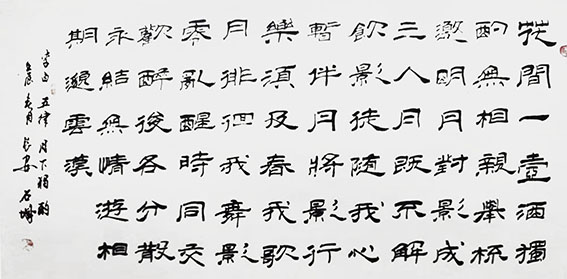 花間一壺酒獨
酌無相親舉杯
邀明月對影成
三人月既不解
飲影徒隨我心
暫伴月將影行
樂須及春我歌
月徘徊我舞影
零亂醒時同交
歡醉後各分散
永結無情遊相
期邈雲漢
李白五律月下獨酌